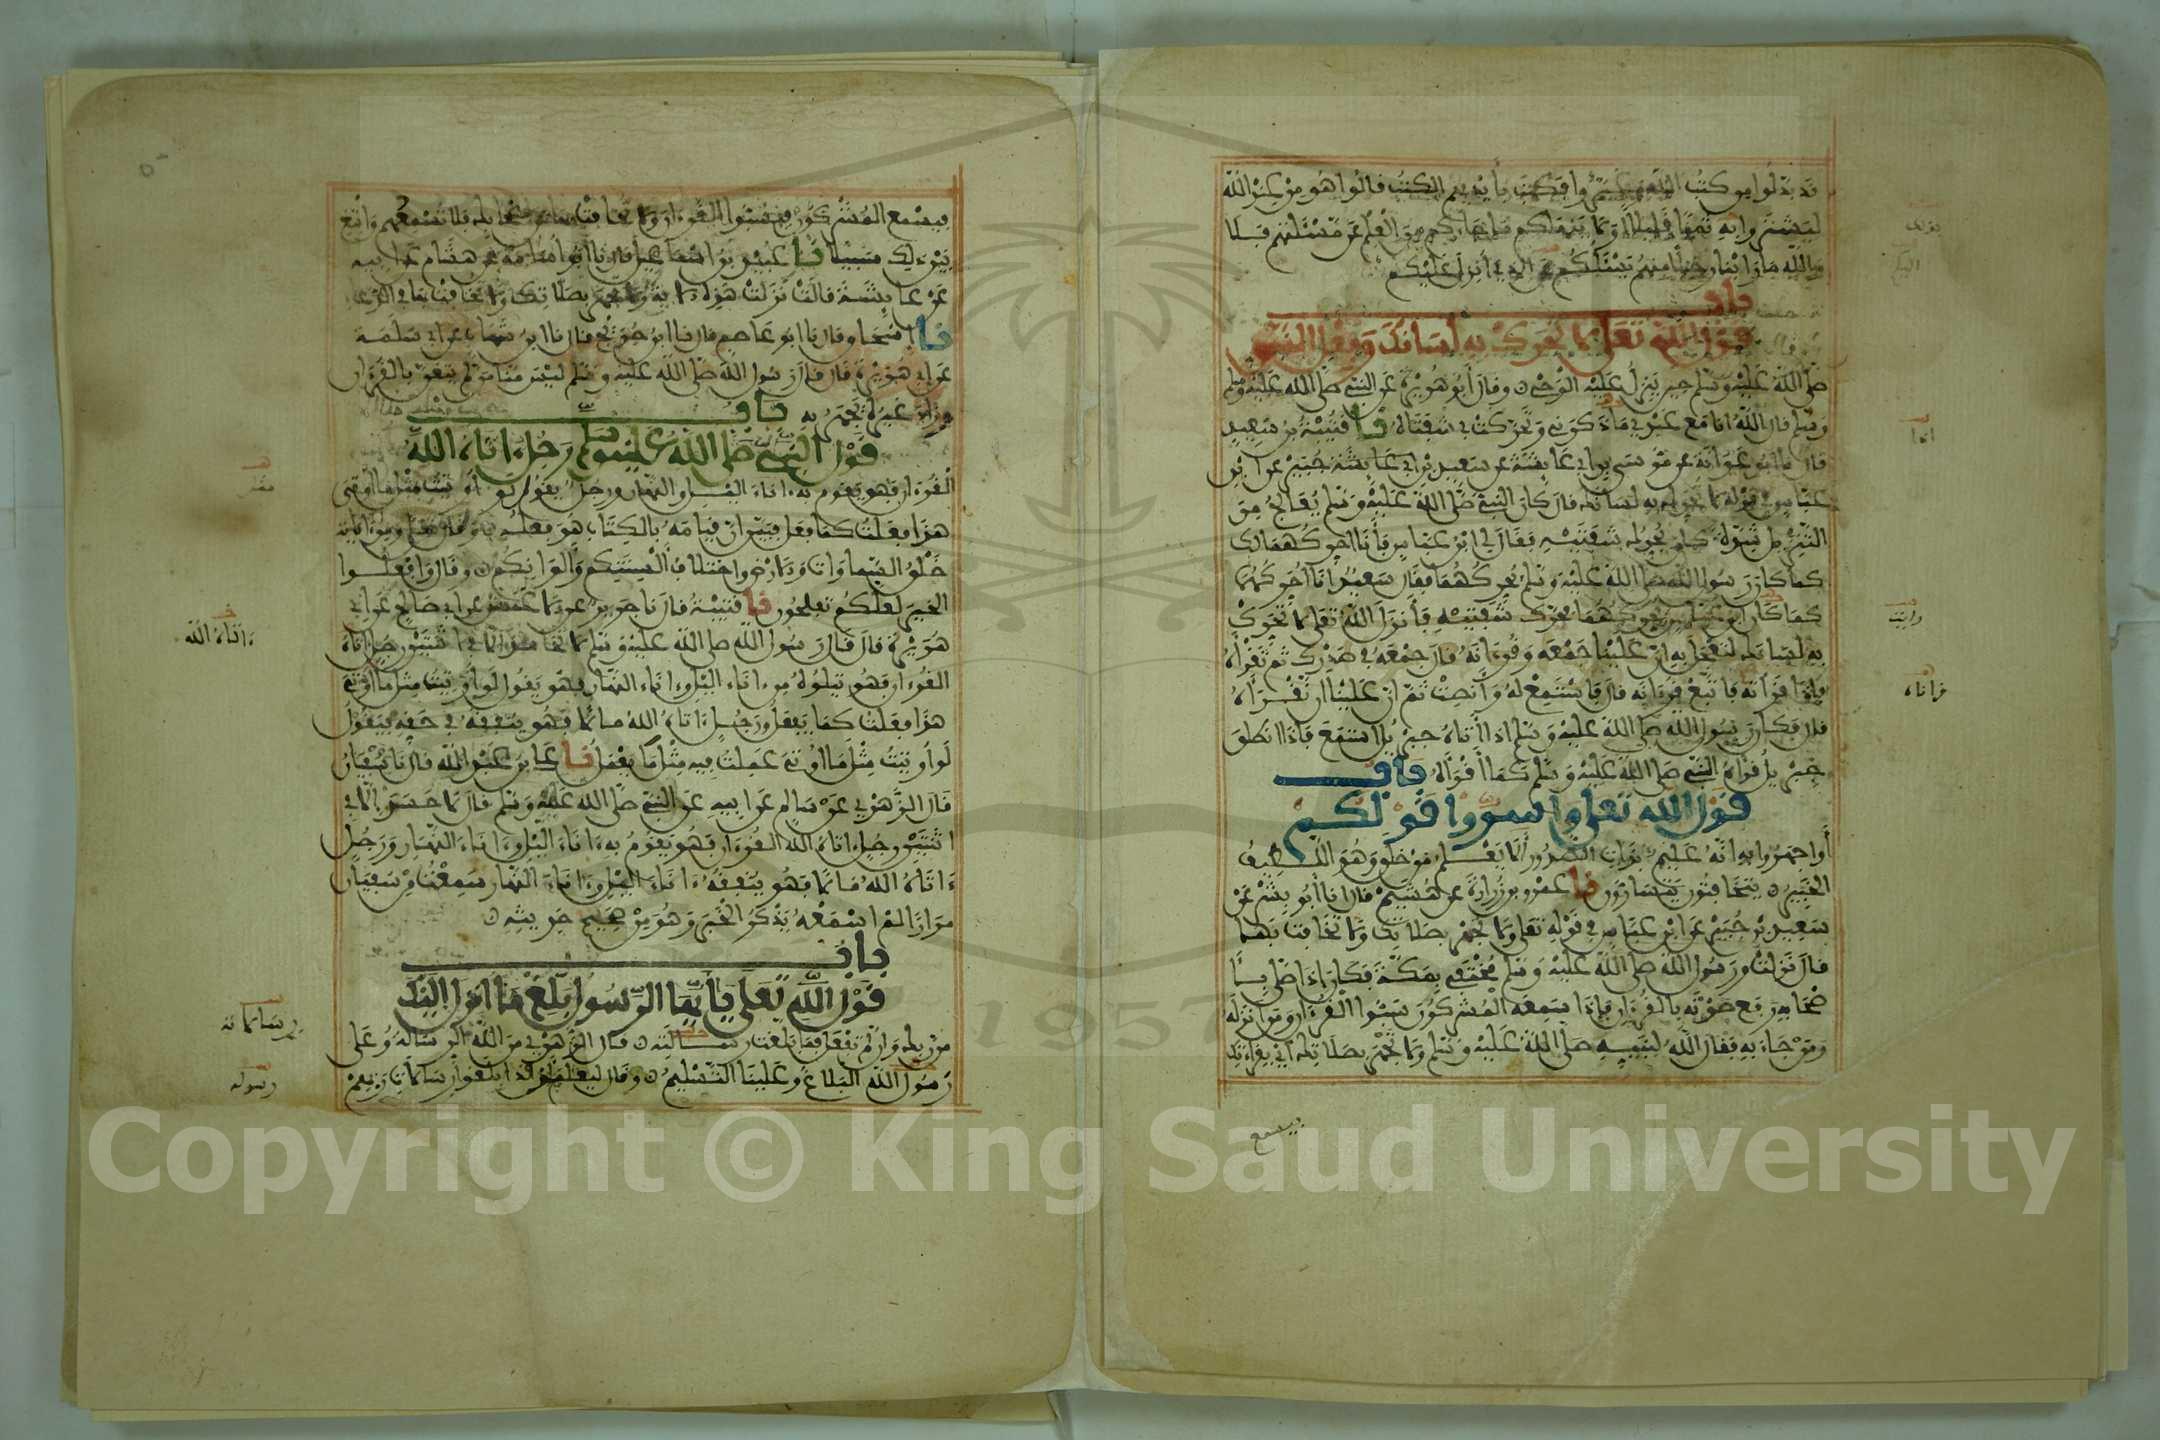 قد بدلوا من كتب الله وغيروا فكتبوا بأيديهم الكتب قالوا هو من عند الله
ليشتروا به ثمنا قليلا أو لا ينهاكم ما جاءكم من العلم عن مسئلتهم فلا
والله ما رأينا رجلا منهم يسئلكم عن الذي أنزل عليكم
باب
قول الله تعلى لا تحرك به لسانك وفعل النبي
صلى الله عليه وسلم حين ينزل عليه الوحي وقال أبو هريرة عن النبي صلى الله عليه وسلم
قال الله انا مع عبدي ما ذكرني وتحركت بي شفتاه نا قتيبة بن سعيد
قال نا ابو عوانة عن موسى بن ابي عائشة عن سعيد بن جبير عن ابن
عباس في قوله لا تحرك به لسانك قال كان النبي صلى الله عليه وسلم يعالج من
التنزيل شدة كان يحرك شفتيه فقال لي ابن عباس فأنا احركهما لك
كما كان رسول الله صلى الله عليه وسلم يحركهما فقال سعيد انا أحركهما
كما كان ابن عباس يحركهما فحرك شفتيه فأنزل الله تعلى لا تحرك
به لسانك لتعجل به ان علينا جمعه وقرءانه قال جمعه في صدرك ثم تقرأه
فإذا قرأنه فاتبع قرءانه قال فاستمع له وأنصت ثم ان علينا ان تقرأه
قال فكان رسول الله صلى الله عليه وسلم اذا أتاه جبريل استمع فإذا انطلق
جبريل قرأه النبي صلى الله عليه وسلم كما أقرأه باب
قول الله تعلى وأسروا قولكم
أو اجهروا به انه عليم بذات الصدور ألا يعلم من خلق وهو اللطيف
الخبير يتخافتون يتسارون نا عمرو بن زرارة عن هشيم قال انا أبو بشر عن
سعيد بن جبير عن ابن عباس في قوله تعلى ولا تجهر بصلاتك ولا تخافت بها
قال نزلت ورسول الله صلى الله عليه وسلم مختفي بمكة فكان اذا صلى
بأصحابه رفع صوته بالقرءان فإذا سمعه المشركون سبوا القرءان ومن انزله
ومن جاء به فقال الله لنبيه صلى الله عليه وسلم ولا تجهر بصلاتك اي بقراءتك
فيسمع
انا
رايت
قرأناه
فيسمع المشركون فيسبوا القرءان ولا تخافت بها عن أصحابك فلا تسمعهم وابتغ
بين ذلك سبيلا نا عبيد بن اسماعيل قال نا ابو اسامة عن هشام عن ابيه
عن عائشة قالت نزلت هذه الاية ولا تجهر بصلاتك ولا تخافت بها في الدعاء
نا اسحاق قال نا ابو عاصم قال نا ابن جريج قال نا ابن شهاب عن ابي سلمة
عن ابي هريرة قال قال رسول الله صلى الله عليه وسلم ليس منا من لم يتغن بالقرءان
وزاد غيره يجهر به باب
قول النبي صلى الله عليه وسلم رجل ءاتاه الله
القرءان فهو يقوم به ءاناء الليل والنهار ورجل يقول لو أوتيت مثل ما أوتي
هذا فعلت كما يفعل فبين ان قيامه بالكتاب هو فعله وقال تعلى ومن ءاياته
خلق السماوات والارض واختلاف ألسنتكم وألوانكم وقال وافعلوا
الخير لعلكم تفلحون نا قتيبة قال نا جرير عن الاعمش عن ابي صالح عن ابي
هريرة قال قال رسول الله صلى الله عليه وسلم لا تحاسد الا في اثنتين رجل ءاتاه
القرءان فهو يتلوه من ءاناء الليل وءاناء النهار فهو يقول لو أوتيت مثل ما أوتي
هذا فعلت كما يفعل ورجل ءاتاه الله مالا فهو ينفقه في حقه فيقول
لو أوتيت مثل ما أوتي عملت فيه مثل ما يعمل نا علي بن عبد الله قال نا سفيان
قال الزهري عن سالم عن ابيه عن النبي صلى الله عليه وسلم قال لا حسد الا في
اثنتين رجل ءاتاه الله القرءان فهو يقوم به ءاناء الليل وءاناء النهار ورجل
ءاتاه الله مالا فهو ينفقه ءاناء الليل وءاناء النهار سمعت من سفيان
مرارا لم اسمعه يذكر الخبر وهو من صحيح حديثه
باب
قول الله تعلى يأيها الرسول بلغ ما انزل اليك
من ربك وان لم تفعل فما بلغت رسالته قال الزهري من الله الرسالة وعلى
رسول الله البلاغ وعلينا التسليم وقال ليعلم ان قد ابلغوا رسالات ربهم
ءاتاه الله
رسالاته
رسوله
1957
Copyright © King Saud University